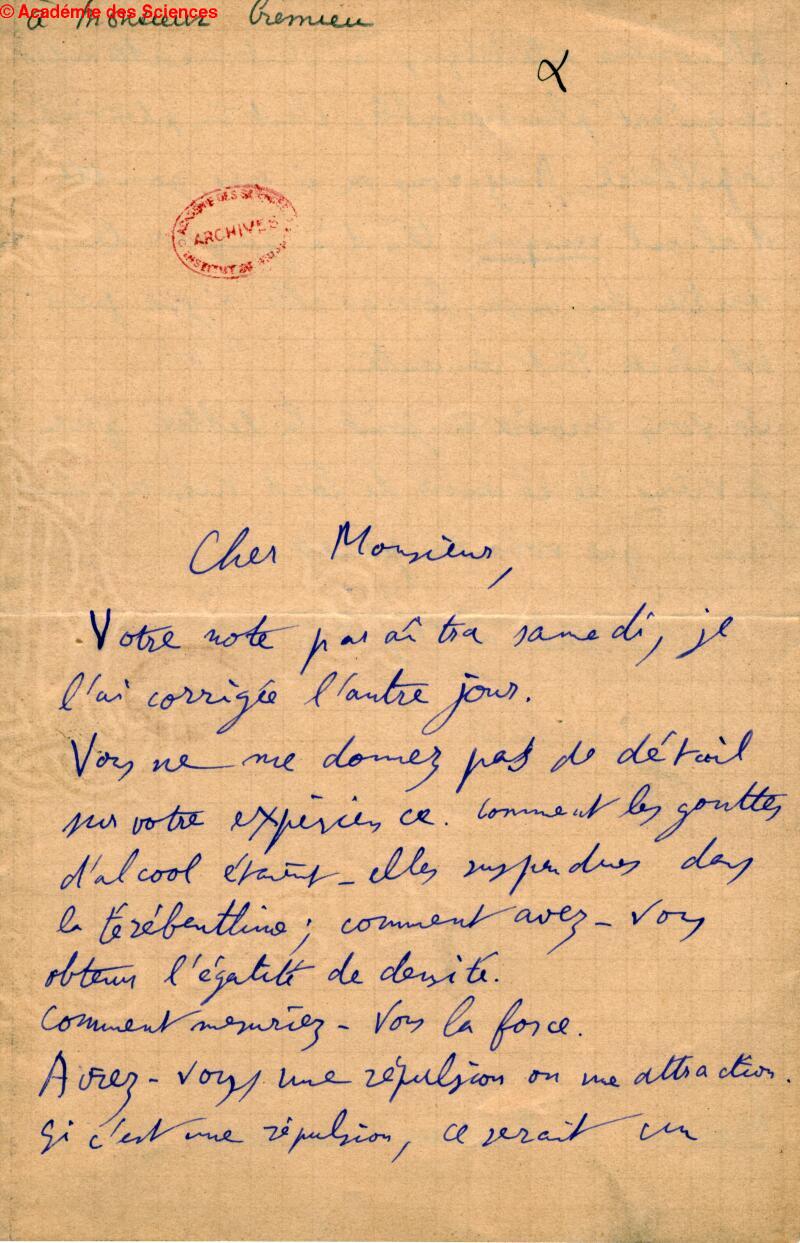 © Académie des Sciences
à Monsieur Cremieu
α
ACADÉMIE DES SCIENCES
ARCHIVES
INSTITUT DE
Cher Monsieur,
Votre note paraîtra samedi, je
l'ai corrigée l'autre jour.
Vous ne me donnez pas de détail
sur votre expérience. comment les gouttes
d'alcool étaient-elles suspendues dans
la térébentine ; comment avez-vous
obtenu l'égalité de densité.
Comment mesuriez-vous la force.
Aviez-vous une répulsion ou une attraction.
Si c'est une répulsion, ce serait un